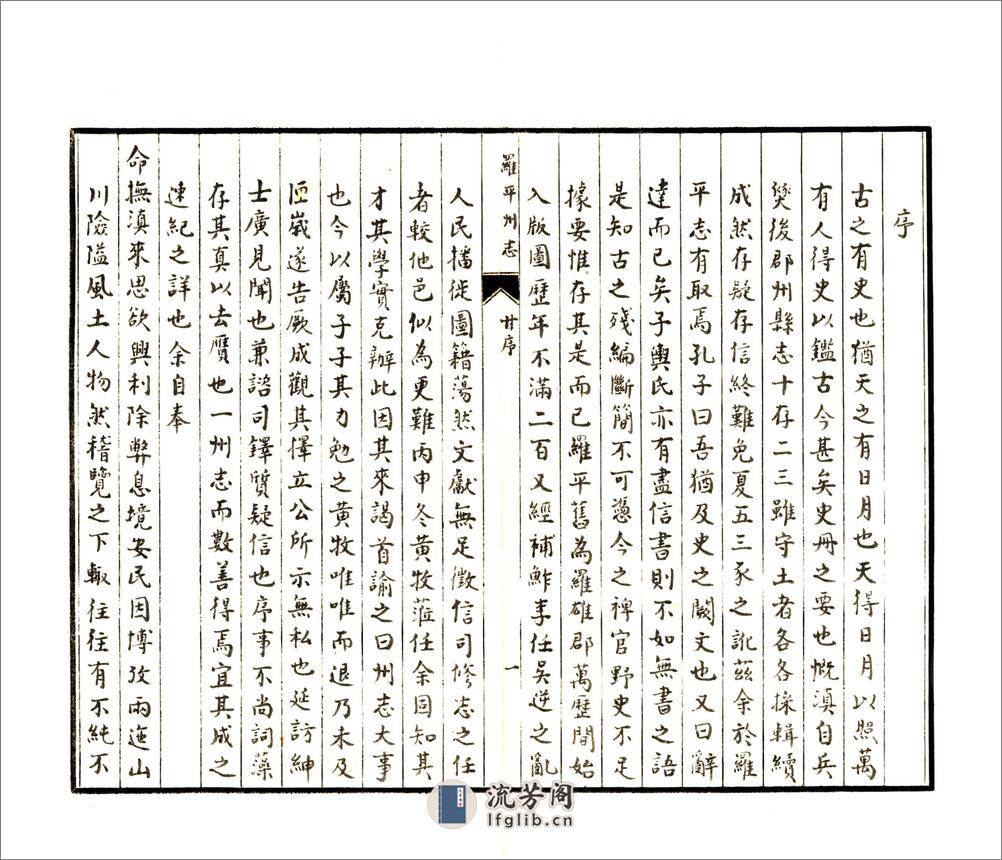 序
古之有史也猶天之有日月也天得日月以照萬
有人得史以鑑古今甚矣史冊之要也慨滇自兵
燹後郡州縣志十存二三雖守土者各各採輯續
成然存疑存信終難免夏五三豕之訛茲余於羅
平志有取焉孔子曰吾猶及史之闕文也又曰辭
達而已矣子輿氏亦有盡信書則不如無書之語
是知古之殘編斷簡不可憑今之稗官野史不足
據要惟存其是而已羅平舊為羅雄郡萬歷間始
入版圖歷年不滿二百又經補鮓李任吳逆之亂
羅平州志
甘序
一
人民播徙圖籍蕩然文獻無足徵信司修志之任
者較他邑似為更難丙申冬黃牧蒞任余固知其
才其學實克辦此因其來謁首諭之曰州志大事
也今以屬子子其力勉之黃牧唯唯而退乃未及
匝歲遂告厥成觀其擇立公所示無私也延訪紳
士廣見聞也兼諮司鐸質疑信也序事不尚詞藻
存其真以去贗也一州志而數善得焉宜其成之
速紀之詳也余自奉
命撫滇來思欲興利除弊息境安民因博攷兩迤山
川險隘風土人物然稽覽之下輙往往有不純不
流芳阁
lfglib.cn